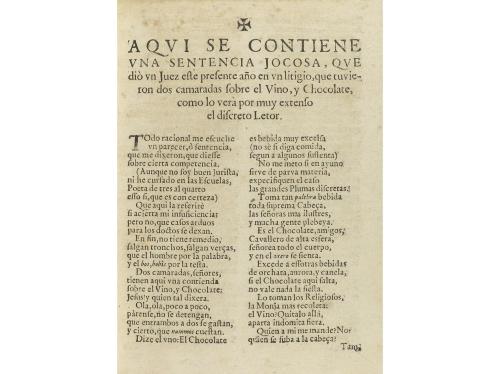 AQVI SE CONTIENE
VNA SENTENCIA JOCOSA, QVE
diò vn Juez este presente año en vn litigio, que tuvie-
ron dos camaradas sobre el Vino, y Chocolate,
como lo verà por muy extenso
el discreto Letor.
TOdo racional me escuche
vn parecer, ò sentencia,
que me dixeron, que diesse
sobre cierta competencia.
(Aunque no soy buen Jurista,
ni he cursado en las Escuelas,
Poeta de tres al quarto
esso si, que es con certeza)
Que aqui la referirè
si acierta mi insuficiencia;
pero no, que casos arduos
para los doctos se dexan.
En fin, no tiene remedio,
salgan tronchos, salgan verças,
que el hombre por la palabra,
y el bos, bobis por la testa.
Dos camaradas, señores,
tienen aqui vna contienda
sobre el Vino, y Chocolate;
Jesus! y quien tal dixera.
Ola, ola, poco a poco,
pàrense, no se detengan,
que entrambos a dos se gastan,
y cierto, que nummos cuestan.
Dize el vno: El Chocolate
es bebida muy excelsa
(no sè si diga comida,
segun a algunos sustenta)
No me meto si en ayuno
sirve de parva materia,
especifiquen el caso
las grandes Plumas discretas.
Toma tan bebida
toda suprema Cabeça,
las señoras mas ilustres,
y mucha gente plebeya.
Es el Chocolate, amigos,
Cavallero de alta esfera,
señorea todo el cuerpo,
y en el se sienta.
Excede a essotras bebidas
de orchata, aurora, y canela,
si el Chocolate aqui falta,
no vale nada la fiesta.
Lo toman los Religiosos,
la Monja mas recoleta:
el Vino? Quitalo allà,
aparta indomita fiera.
Quien a mi me mande? Nor
quien se suba a la cabeça?
Tam-